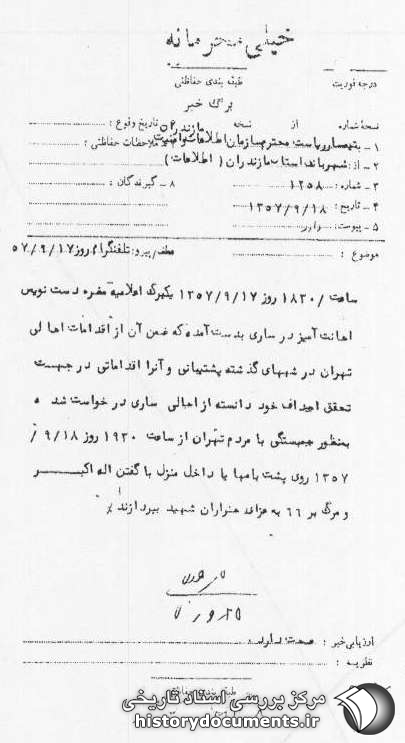 خیلی محرمانه
درجه فوریت
طبقه بندی حفاظتی
برگ خبر
نسخه شماره : از نسخه
تاریخ وقوع :
۱ ـ به ریاست محترم سازمان اطلاعات و امنیت مازندران
ملاحظات حفاظتی :
۲ ـ از : شهربانی استان مازندران ( اطلاعات )
۳ ـ شماره : ۱۲۵۸
۸ ـ گیرندگان :
۴ ـ تاریخ : ۱۳۵۷/۹/۱۸
۵ ـ پیوست :
موضوع : عطف/پیرو: تلفنگرام روز ۵۷/۹/۱۷
ساعت /۱۸۳۰ روز ۱۳۵۷/۹/۱۷ یکبرگ اعلامیه مضره دست نویس
اهانت آمیز در ساری بدست آمده که ضمن آن از اقدامات اهالی
تهران در شبهای گذشته پشتیبانی و آنرا اقداماتی در جهت
تحقق اهداف خود دانسته از اهالی ساری درخواست شده
بمنظور همبستگی با مردم تهران از ساعت ۱۹۳۰ روز ۹/۱۸ /
۱۳۵۷ روی پشت بامها یا داخل منزل با گفتن اله اکبر
و مرگ بر ۶۶ به عزای هزاران شهید بپردازند٪
ارزیابی خبر : صحت دارد
نظریه :
طبقه بندی حفاظتی
مرکز بررسی اسناد تاریخی
historydocuments.ir